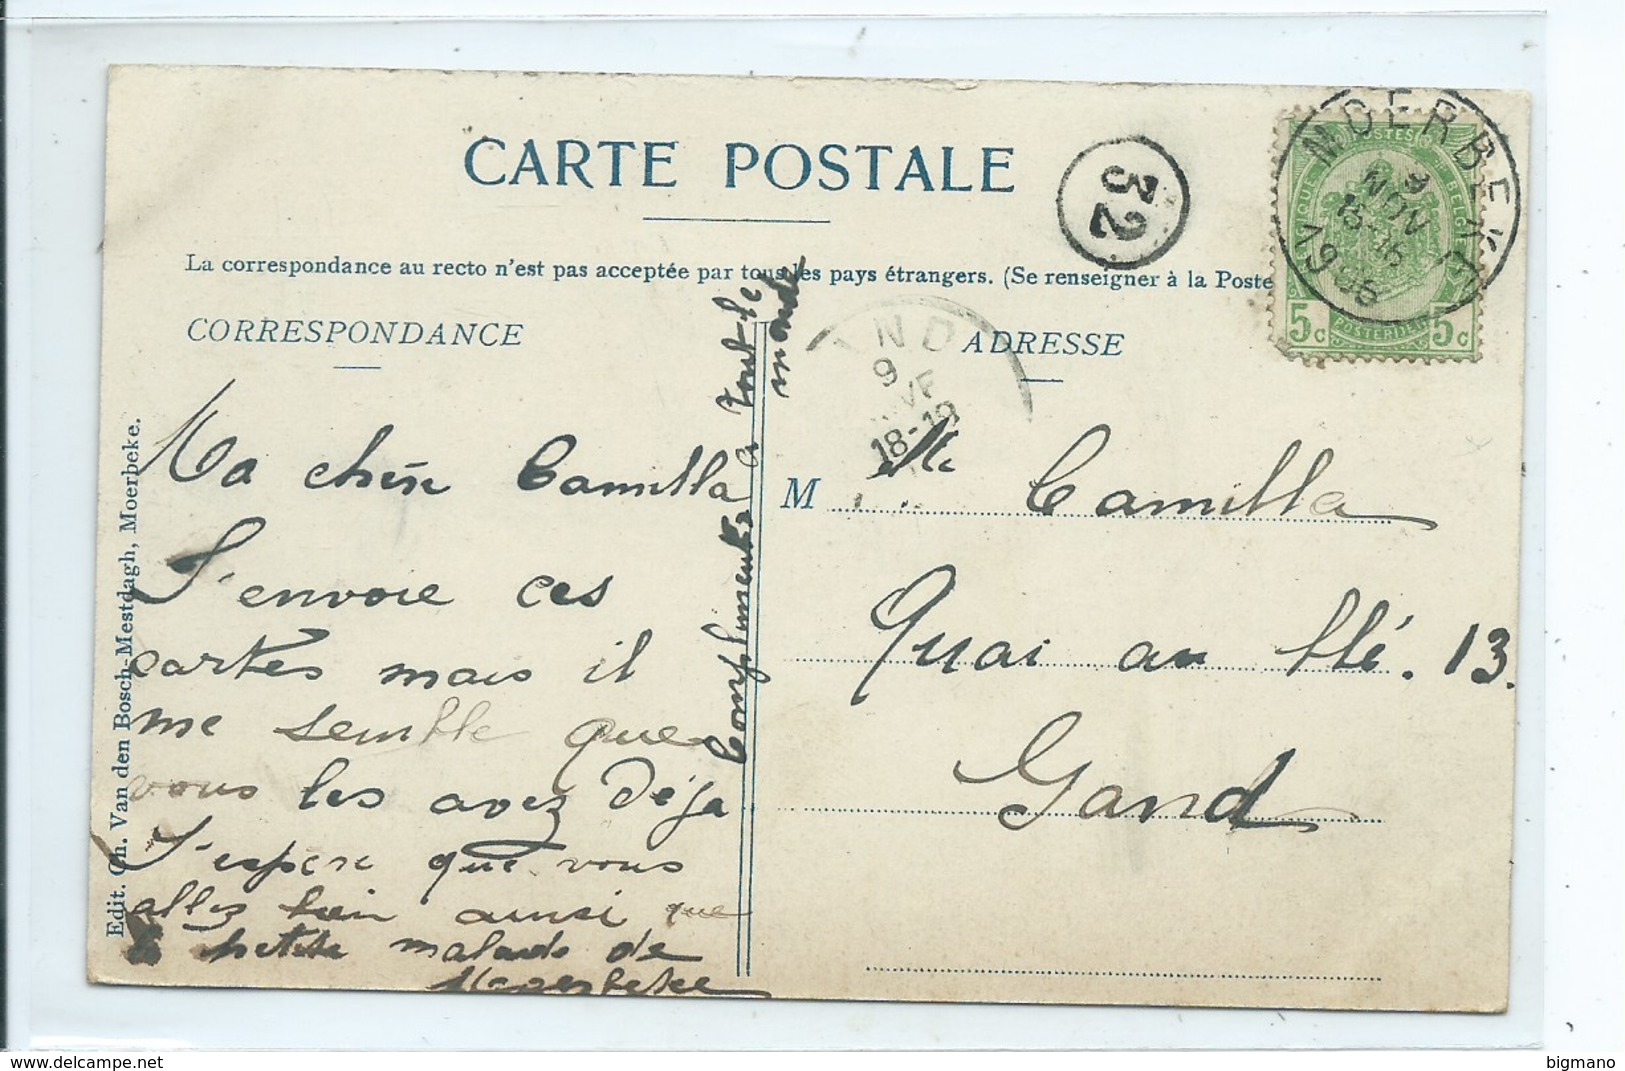 CARTE POSTALE
32
MOERBEKE
9
NOV
15-16
POSTES
BELGIQUE
5c
POSTERIJEN
5c
La correspondance au recto n'est pas acceptée par tous les pays étrangers. (Se renseigner à la Poste
CORRESPONDANCE
ADRESSE
ND
9
18-19
Ma chère Camilla
J'envoie ces
cartes mais il
me semble que
vous les avez déja
J'espère que vous
allez bien ainsi que
la petite malade de
Moerbeke
Compliments a tout le
monde
M lle Camilla
Quai au blé. 13.
Gand
Edit. Ch. Van den Bosch-Mestdagh, Moerbeke.
www.delcampe.net
bigmano